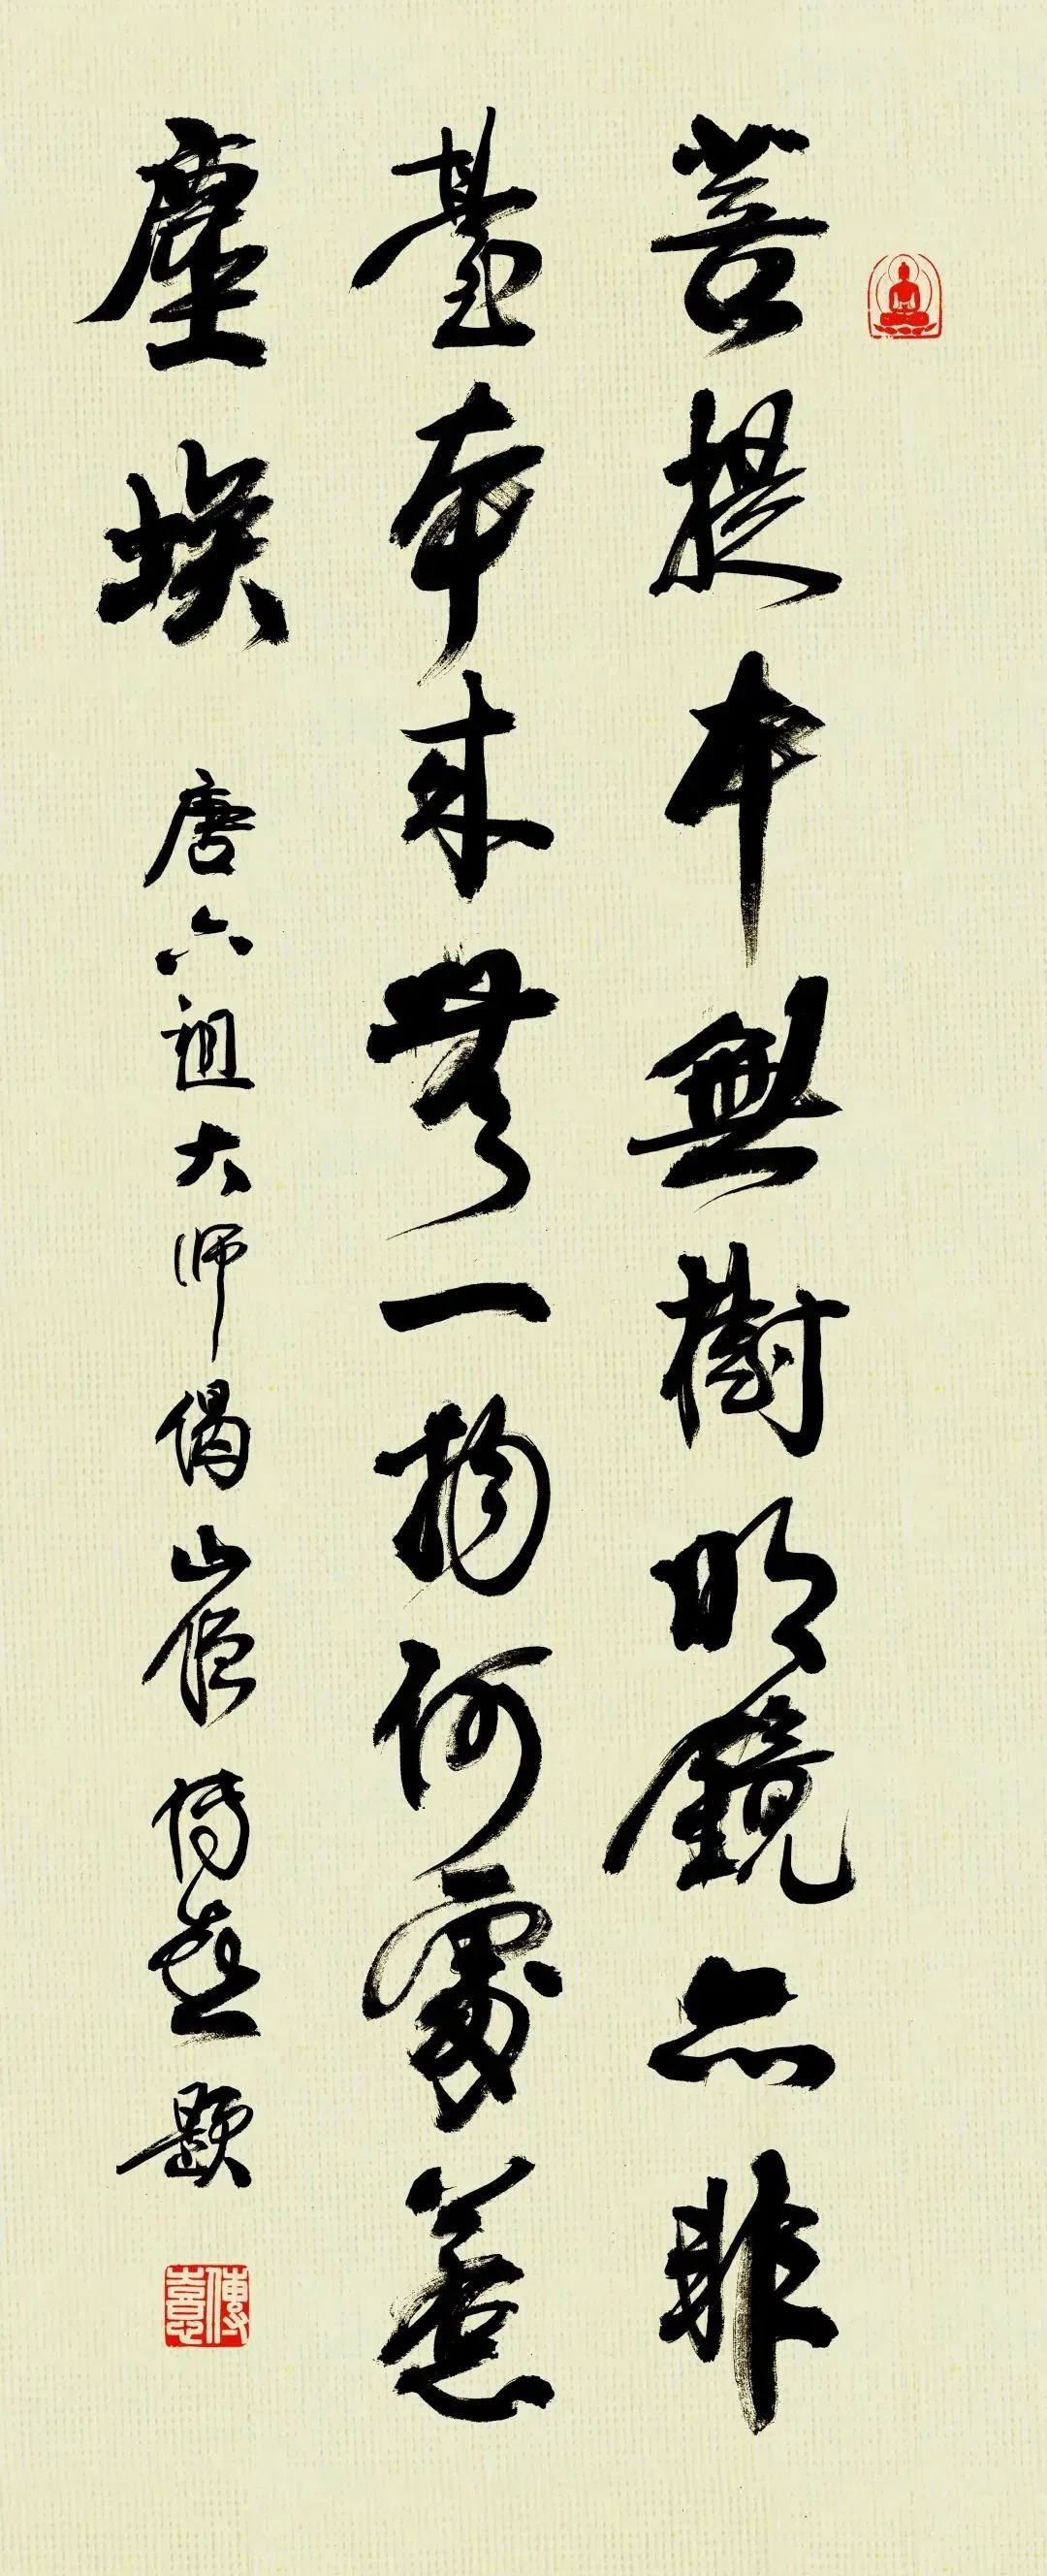 菩提本無樹明鏡亦非
臺本来無一物何處惹
塵埃 唐六祖大师偈山僧传喜题
傳喜